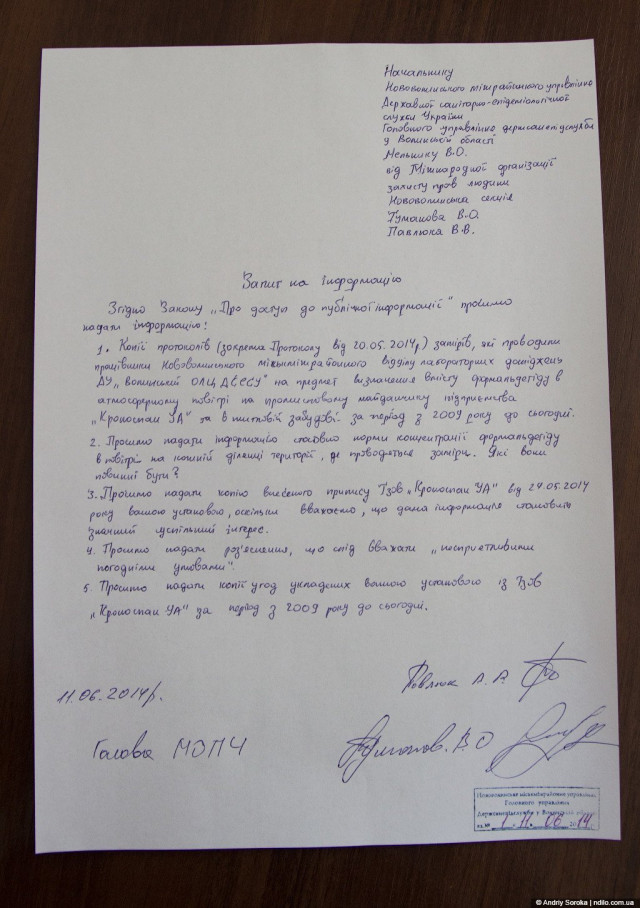 Начальнику
Нововолинського міжрайонного управління
Державної санітарно-епідеміологічної
служби України
Головного управління держсанепідслужби
у Волинській області
Мельнику В.О.
від Міжнародної організації
захисту прав людини
Нововолинська секція
Туманова В.О.
Павлюка В.В.
Запит на інформацію
Згідно Закону „Про доступ до публічної інформації“ просимо
надати інформацію:
1. Копії протоколів (зокрема Протоколу від 20.05.2014р) замірів, які проводили
працівники Нововолинського відділу лабораторних досліджень
ДУ „Волинський ОЛЦ ДСЕСУ“ на предмет визначення вмісту формальдегіду в
атмосферному повітрі на промисловому майданчику підприємства
„Кроноспан УА“ та в житловій забудові за період з 2009 року до сьогодні.
2. Просимо надати інформацію стосовно норми концентрації формальдегіду
в повітрі на кожній ділянці території, де проводяться заміри. Які вони
повинні бути?
3. Просимо надати копію внесеного припису ТзОВ „Кроноспан УА“ від 24.05.2014
року вашою установою, оскільки вважаємо, що дана інформація становить
значний суспільний інтерес.
4. Просимо надати роз'яснення, що слід вважати „несприятливими
погодніми умовами“.
5. Просимо надати копії угод укладених вашою установою із ТзОВ
„Кроноспан УА“ за період з 2009 року до сьогодні.
Павлюк
11.06.2014р.
Голова МОПЧ
В.О
Нововолинське міжрайонне управління
Головного управління
Держсанепідслужби у Волинській області
11. 06 2014
© Andriy Soroka | ndilo.com.ua